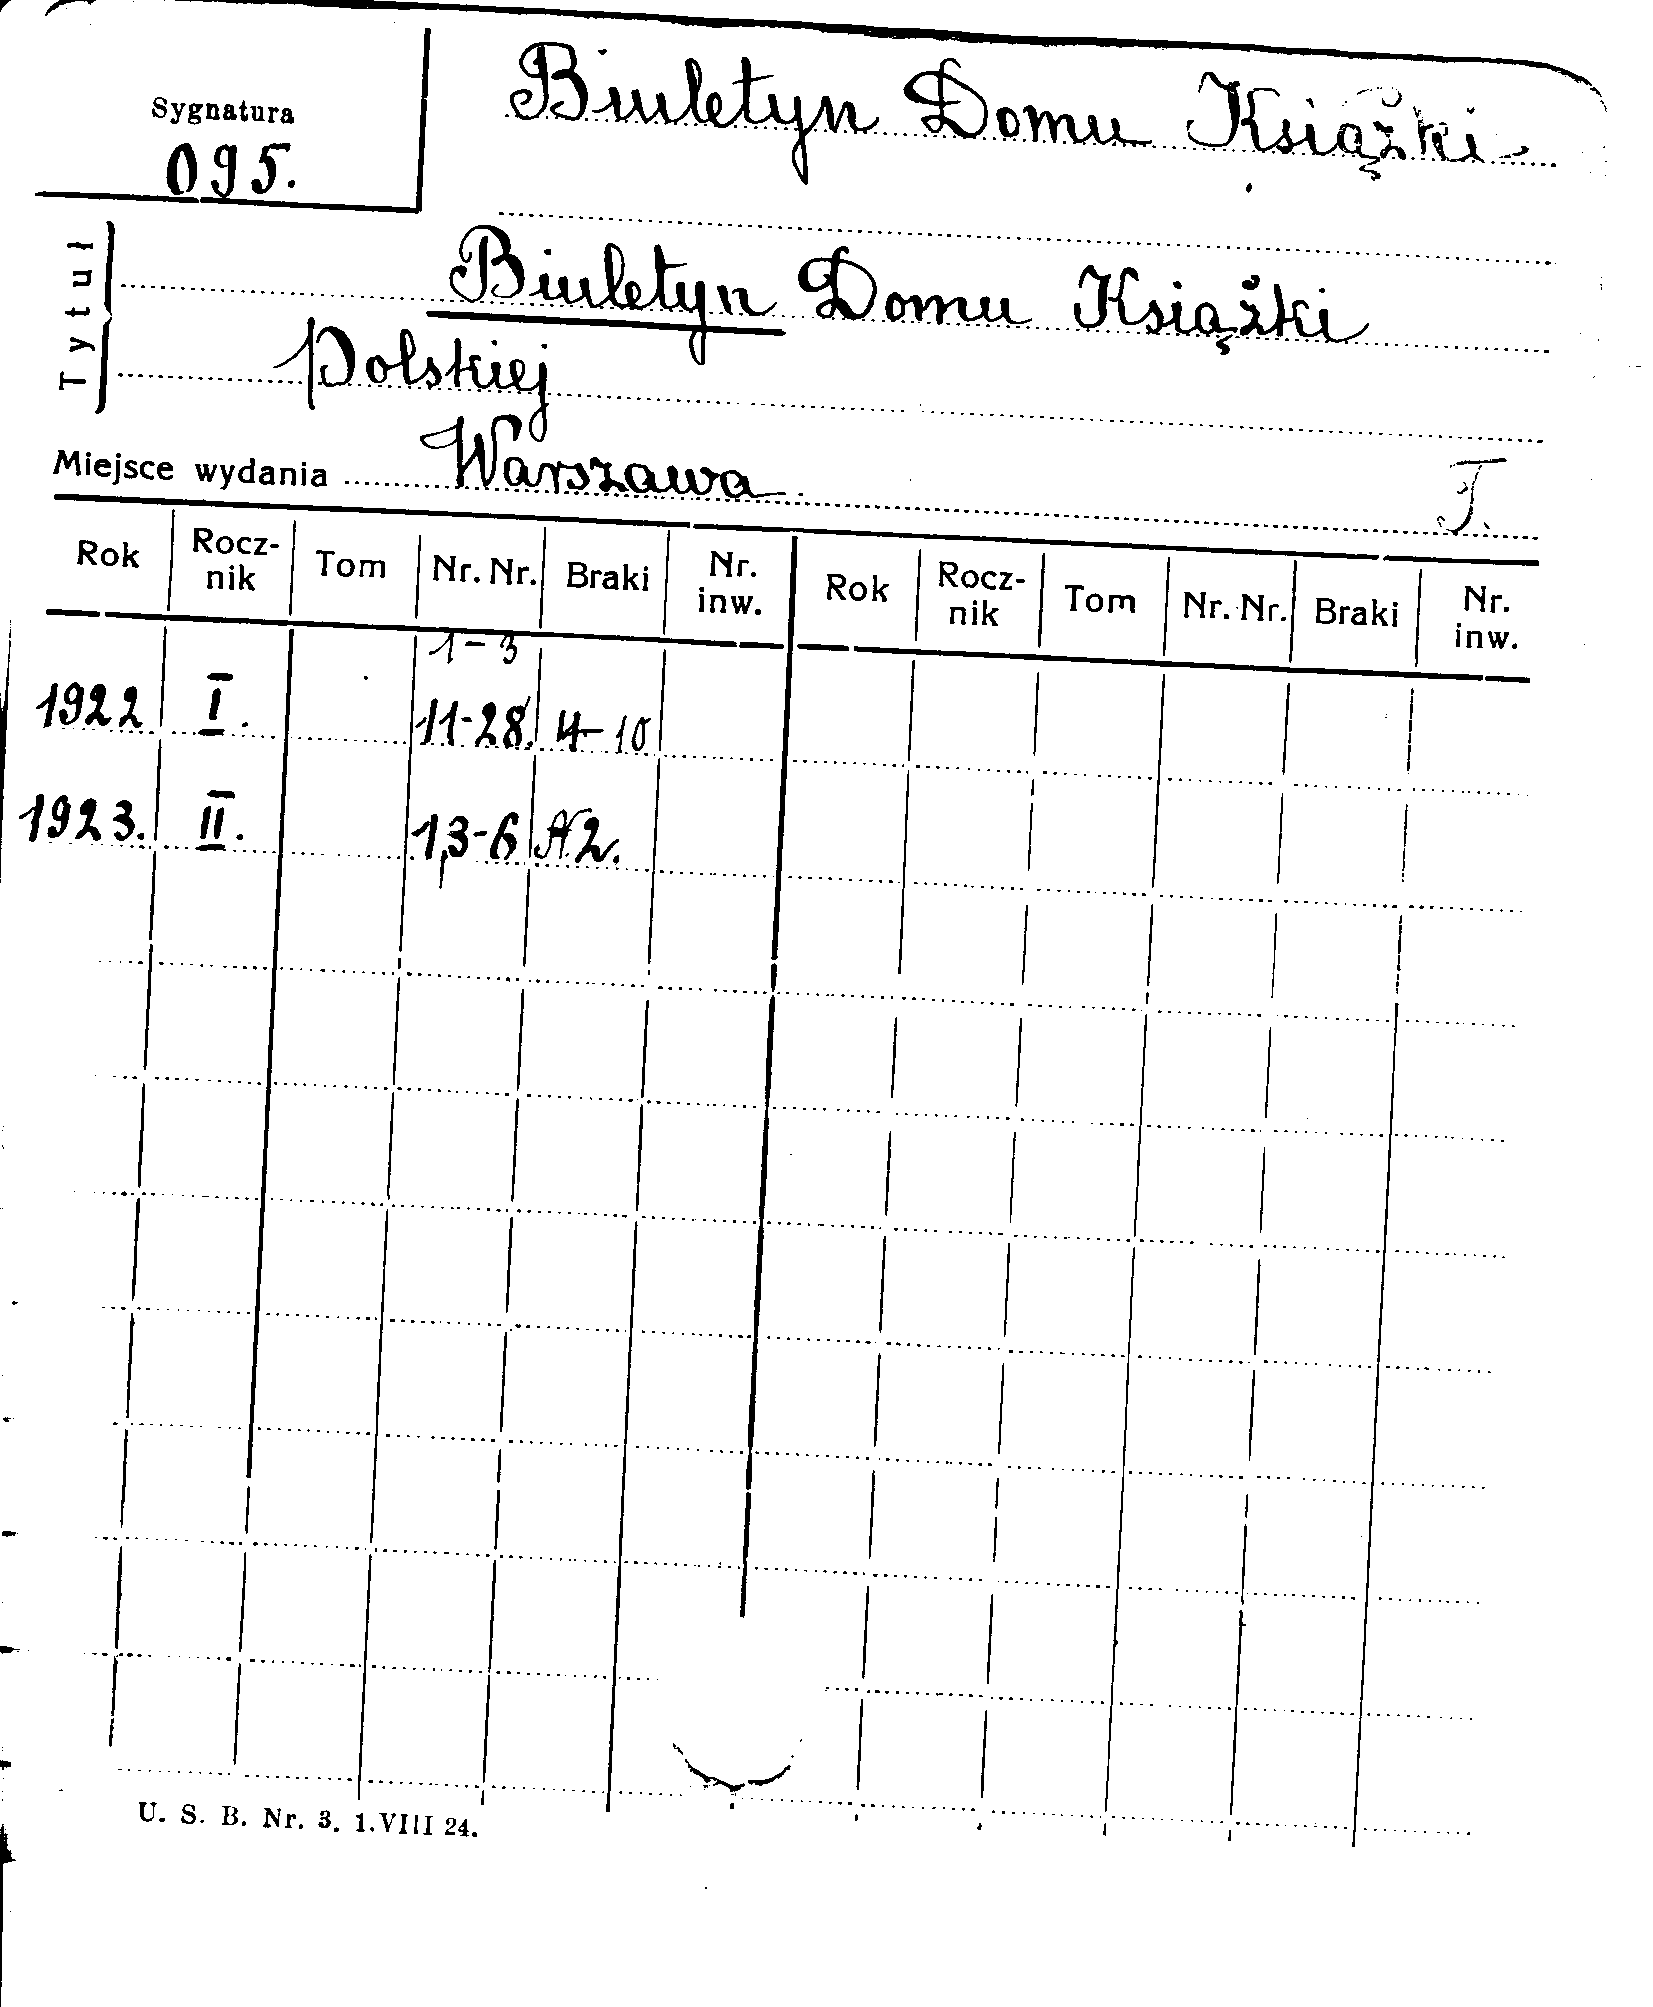 Biuletyn Domu Książki
Sygnatura
095.
Tytuł
Biuletyn Domu Książki
Polskiej
Miejsce wydania Warszawa
T.
Rok Rocz-nik Tom Nr. Nr. Braki Nr. inw. Rok Rocz-nik Tom Nr. Nr. Braki Nr. inw.
1-3
1922 I. 11-28. 4-10
1923. II. 1,3-6 N 2.
U. S. B. Nr. 3. 1.VIII 24.